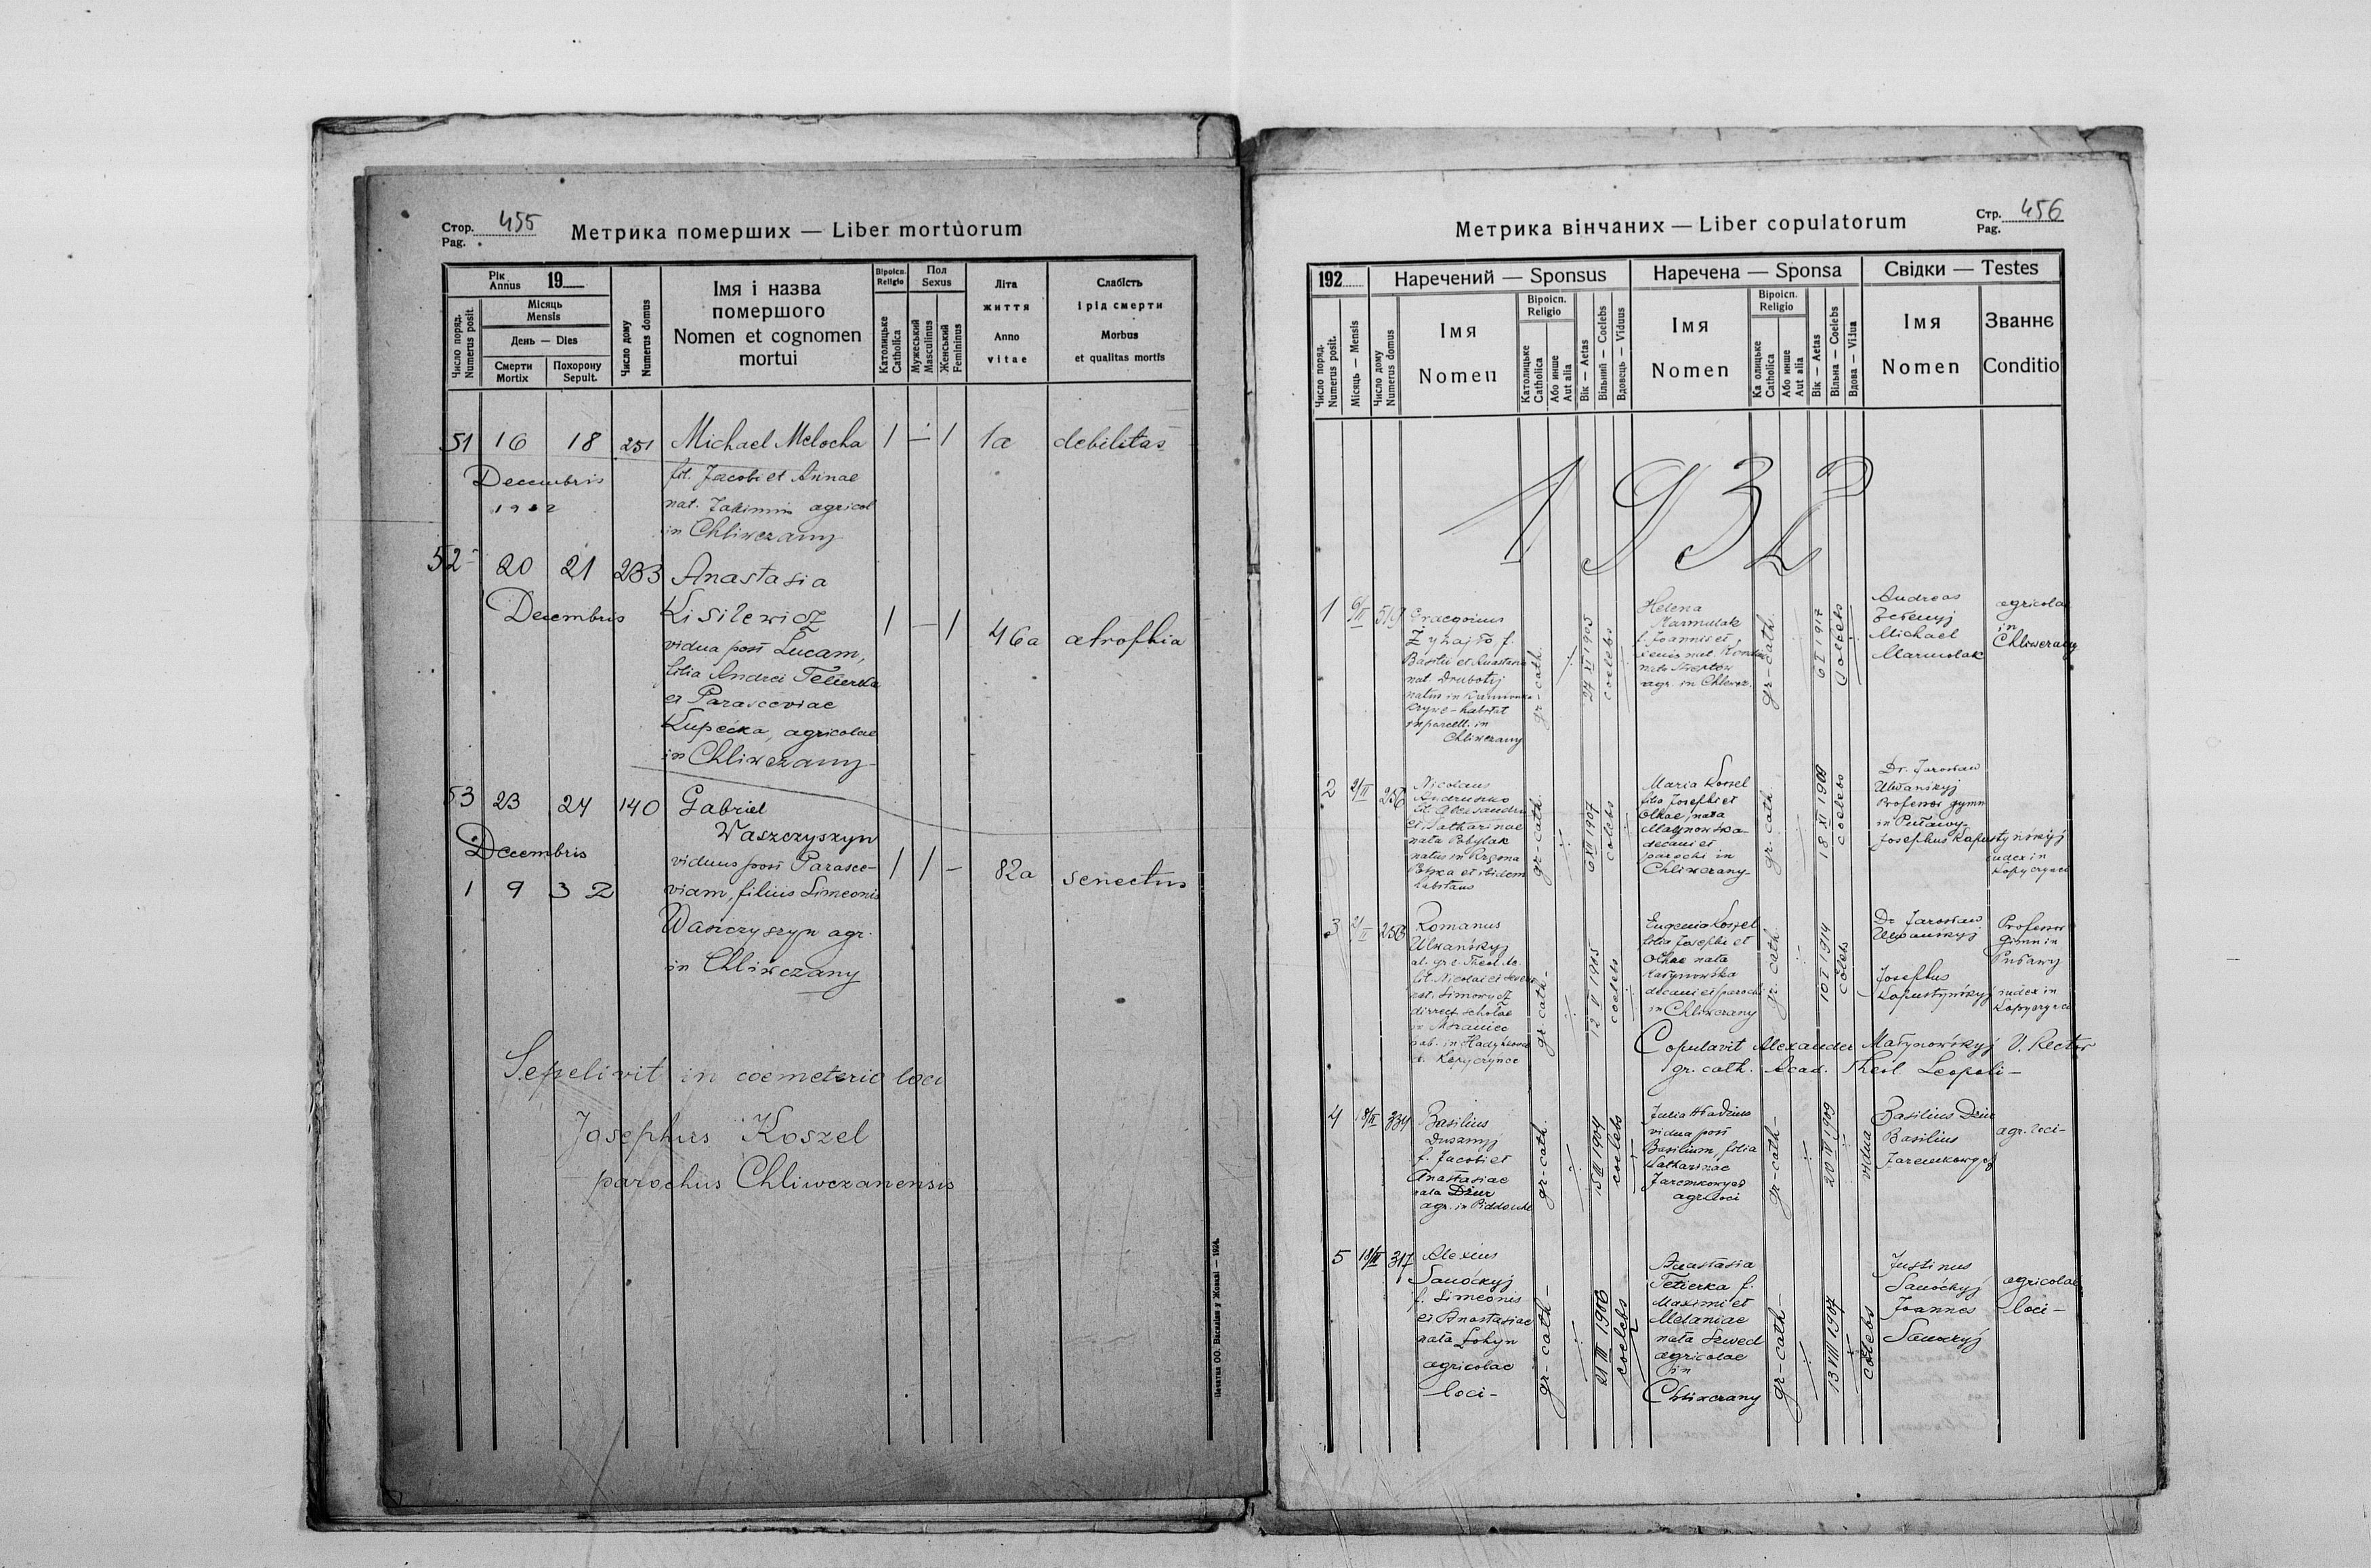 Стор. 455
Pag.
Метрика померших — Liber mortuorum
Рік
Annus 19
Число поряд.
Numerus posit.
Місяць
Mensis
День — Dies
Смерти
Mortix
Похорону
Sepult.
Число дому
Numerus domus
Імя і назва
помершого
Nomen et cognomen
mortui
Віроісп.
Religio
Католицьке
Catholica
Пол
Sexus
Мужеський
Masculinus
Женський
Femininus
Літа
життя
Anno
vitae
Слабість
і рід смерти
Morbus
et qualitas mortis
51 16 18 251 Michael Melocha 1 — 1 1a debilitas
Decembris fil. Jacobi et Annae
1932 nat. agricol
in Chliwczany
52 20 21 233 Anastasia
Decembris Kisilewicz 1 — 1 46a atrophia
vidua post Lucam,
filia Andrei
et Parasceviae
Kupećka, agricolae
in Chliwczany
53 23 24 140 Gabriel
Waszczyszyn
Decembris viduus post Parasce- 1 1 — 82a senectus
1932 viam, filius Simeonis
Waszczyszyn agr.
in Chliwczany
Sepelivit in coemeterio loci
Josephus Koszel
parochus Chliwczanensis
Печатня ОО. Василіян у Жовкві — 1924.
Метрика вінчаних — Liber copulatorum
Стр. 456
Pag.
192
Наречений — Sponsus
Наречена — Sponsa
Свідки — Testes
Число поряд.
Numerus posit.
Місяць — Mensis
Число дому
Numerus domus
Імя
Nomen
Віроісп.
Religio
Католицьке
Catholica
Або инше
Aut alia
Вік — Aetas
Вільний — Coelebs
Вдовець — Viduus
Імя
Nomen
Віроісп.
Religio
Ка олицьке
Catholica
Або инше
Aut alia
Вік — Aetas
Вільна — Coelebs
Вдова — Vidua
Імя
Nomen
Званнє
Conditio
1932
1 6/II 519
Żynajło f.
Basilii et Anastasiae
nat. Drubotij
natus in
habitat
in parcell. in
Chliwczany
gr-cath.
27 XI 1905
coelebs
Helena
Marmulak
f. Joannis et
agr. in Chliwcz.
gr-cath.
6 I 1917
Coelebs
Andreas
Michael
Marmolak
agricolae
in
Chliwczany
2 2/II 256 Nicolaus
Andruszko
fil. Alexandri
et Catharinae
nata Pobylak
natus in
et ibidem
habitans
gr-cath.
6 XII 1907
coelebs
Maria Koszel
filia Josephi et
Olhae, nata
Malynowska
decani et
parochi in
Chliwczany
gr. cath.
18 XI 1909
coelebs
Dr. Jarosław
Ulwańskyj
Profesor gymn
in Puławy
Josephus Kapustynskyj
iudex in
Kopyczynci
3 2/II 256 Romanus
Ulwańskyj
fil. Nicolai et
nat. Simowycz
direct. scholae
in Mszaniec
hab. in Hadynkowce
Kopyczynce
gr-cath-
12 V 1905
coelebs
Eugenia Koszel
filia Josephi et
Olhae nata
Małynowśka
decani et parochi
in Chliwczany
gr. cath
10 I 1914
coelebs
Dr Jarosław
Ulwańskyj
Josephus
Kapustynśkyj
Profesor
Gimn in
Puławy
iudex in
Kopyczynci
Copulavit Alexander Małynowśkyj V. Rector
gr. cath. Acad. Theol. Leopoli —
4 18/II 334 Basilius
Dusznyj
f. Jacobi et
Anastasiae
nata Dziur
agr. in
gr-cath.
15 III 1904
coelebs
Julia
vidua post
Basilium, filia
Katharinae
Jaremkowycz
agr loci
gr-cath-
20 IV 1909
vidua
Basilius Dziur
Basilius
Jaremkowycz
agr. loci-
5 18/II 317 Alexius
Sanóckyj
f. Simeonis
et Anastasiae
nata Łokyn
agricolae
loci-
gr-cath-
21 III 1906
coelebs
Anastasia
f.
Maximi et
Melaniae
nata Szwed
agricolae
in
Chliwczany
gr-cath-
13 VIII 1907
coelebs
Justinus
Sanóckyj
Joannes
Sanockyj
agricolae
loci-